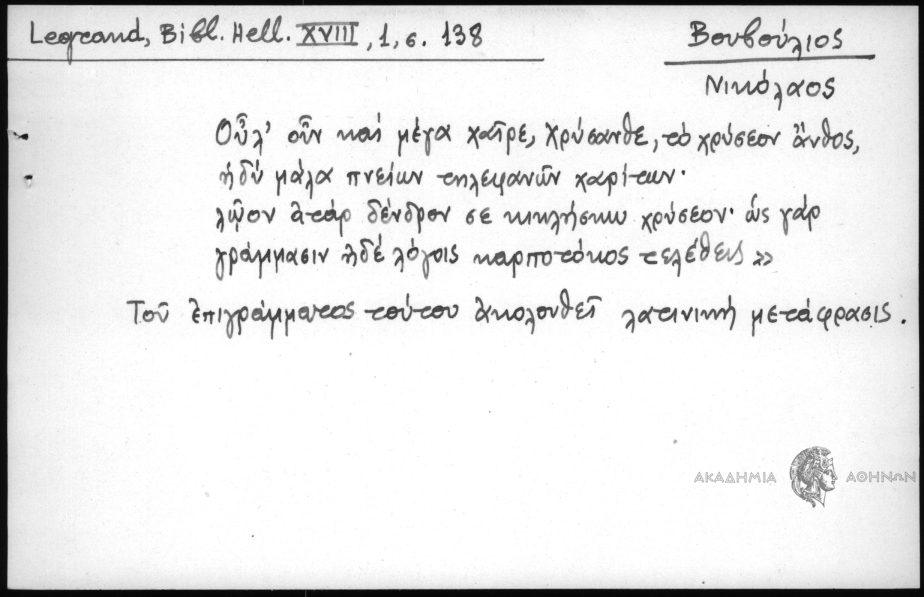 Legrand, Bibl. Hell. XVIII, 1, σ. 138
Βουβούλιος
Νικόλαος
Οὖλ' οὖν καὶ μέγα χαῖρε, Χρύσανθε, τὸ χρύσεον ἄνθος,
ἡδὺ μάλα πνείων τηλεφανῶν χαρίτων·
λῷον ἀτὰρ δένδρον σε κικλήσκω χρύσεον· ὡς γὰρ
γράμμασιν ἠδὲ λόγοις καρποτόκος τελέθεις »
Τοῦ ἐπιγράμματος τούτου ἀκολουθεῖ λατινικὴ μετάφρασις.
ΑΚΑΔΗΜΙΑ ΑΘΗΝΩΝ